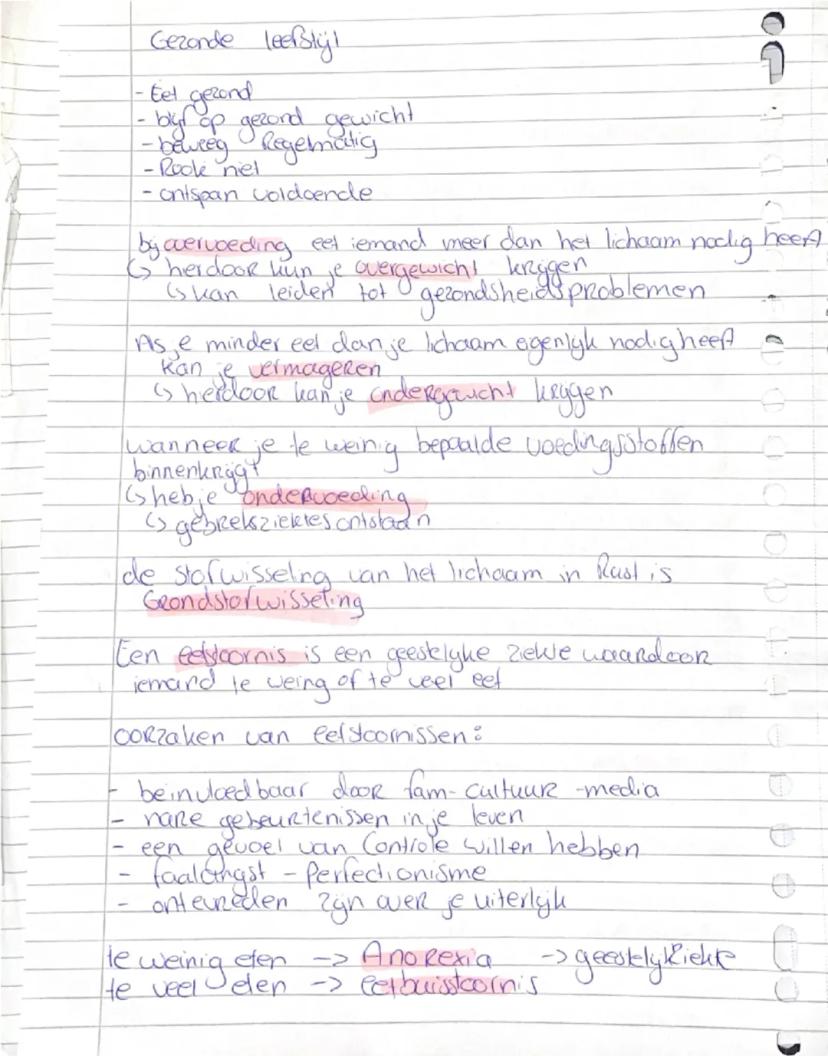 Gezonde leefstijl
- Eet gezond
- blijf op gezond gewicht
- beweeg Regelmatig
- Rook niet
- ontspan voldoende
bij overvoeding eet iemand meer dan het lichaam nodig heeft
↳ herdoor kun je overgewicht krijgen
↳ kan leiden tot gezondsheidsproblemen
Als je minder eet dan je lichaam egenlijk nodig heeft
kan je vermageren
↳ herdoor kan je ondergewicht krijgen
wanneer je te weinig bepaalde voedingsstoffen
binnenkrijgt
↳ heb je ondervoeding
↳ gebreksziektes ontstaan
de stofwisseling van het lichaam in Rust is
Grondstofwisseling
Een eetstoornis is een geestelijke ziekte waardoor
iemand te weing of te veel eet
oorzaken van eetstoornissen:
- beinvloedbaar door fam- cultuur -media
- nare gebeurtenissen in je leven
- een gevoel van Controle willen hebben
- faalangst - Perfectionisme
- ontevreden zijn over je uiterlijk
te weinig eten -> Anorexia -> geestelijk Ziekte
te veel eten -> eetbuisstoornis